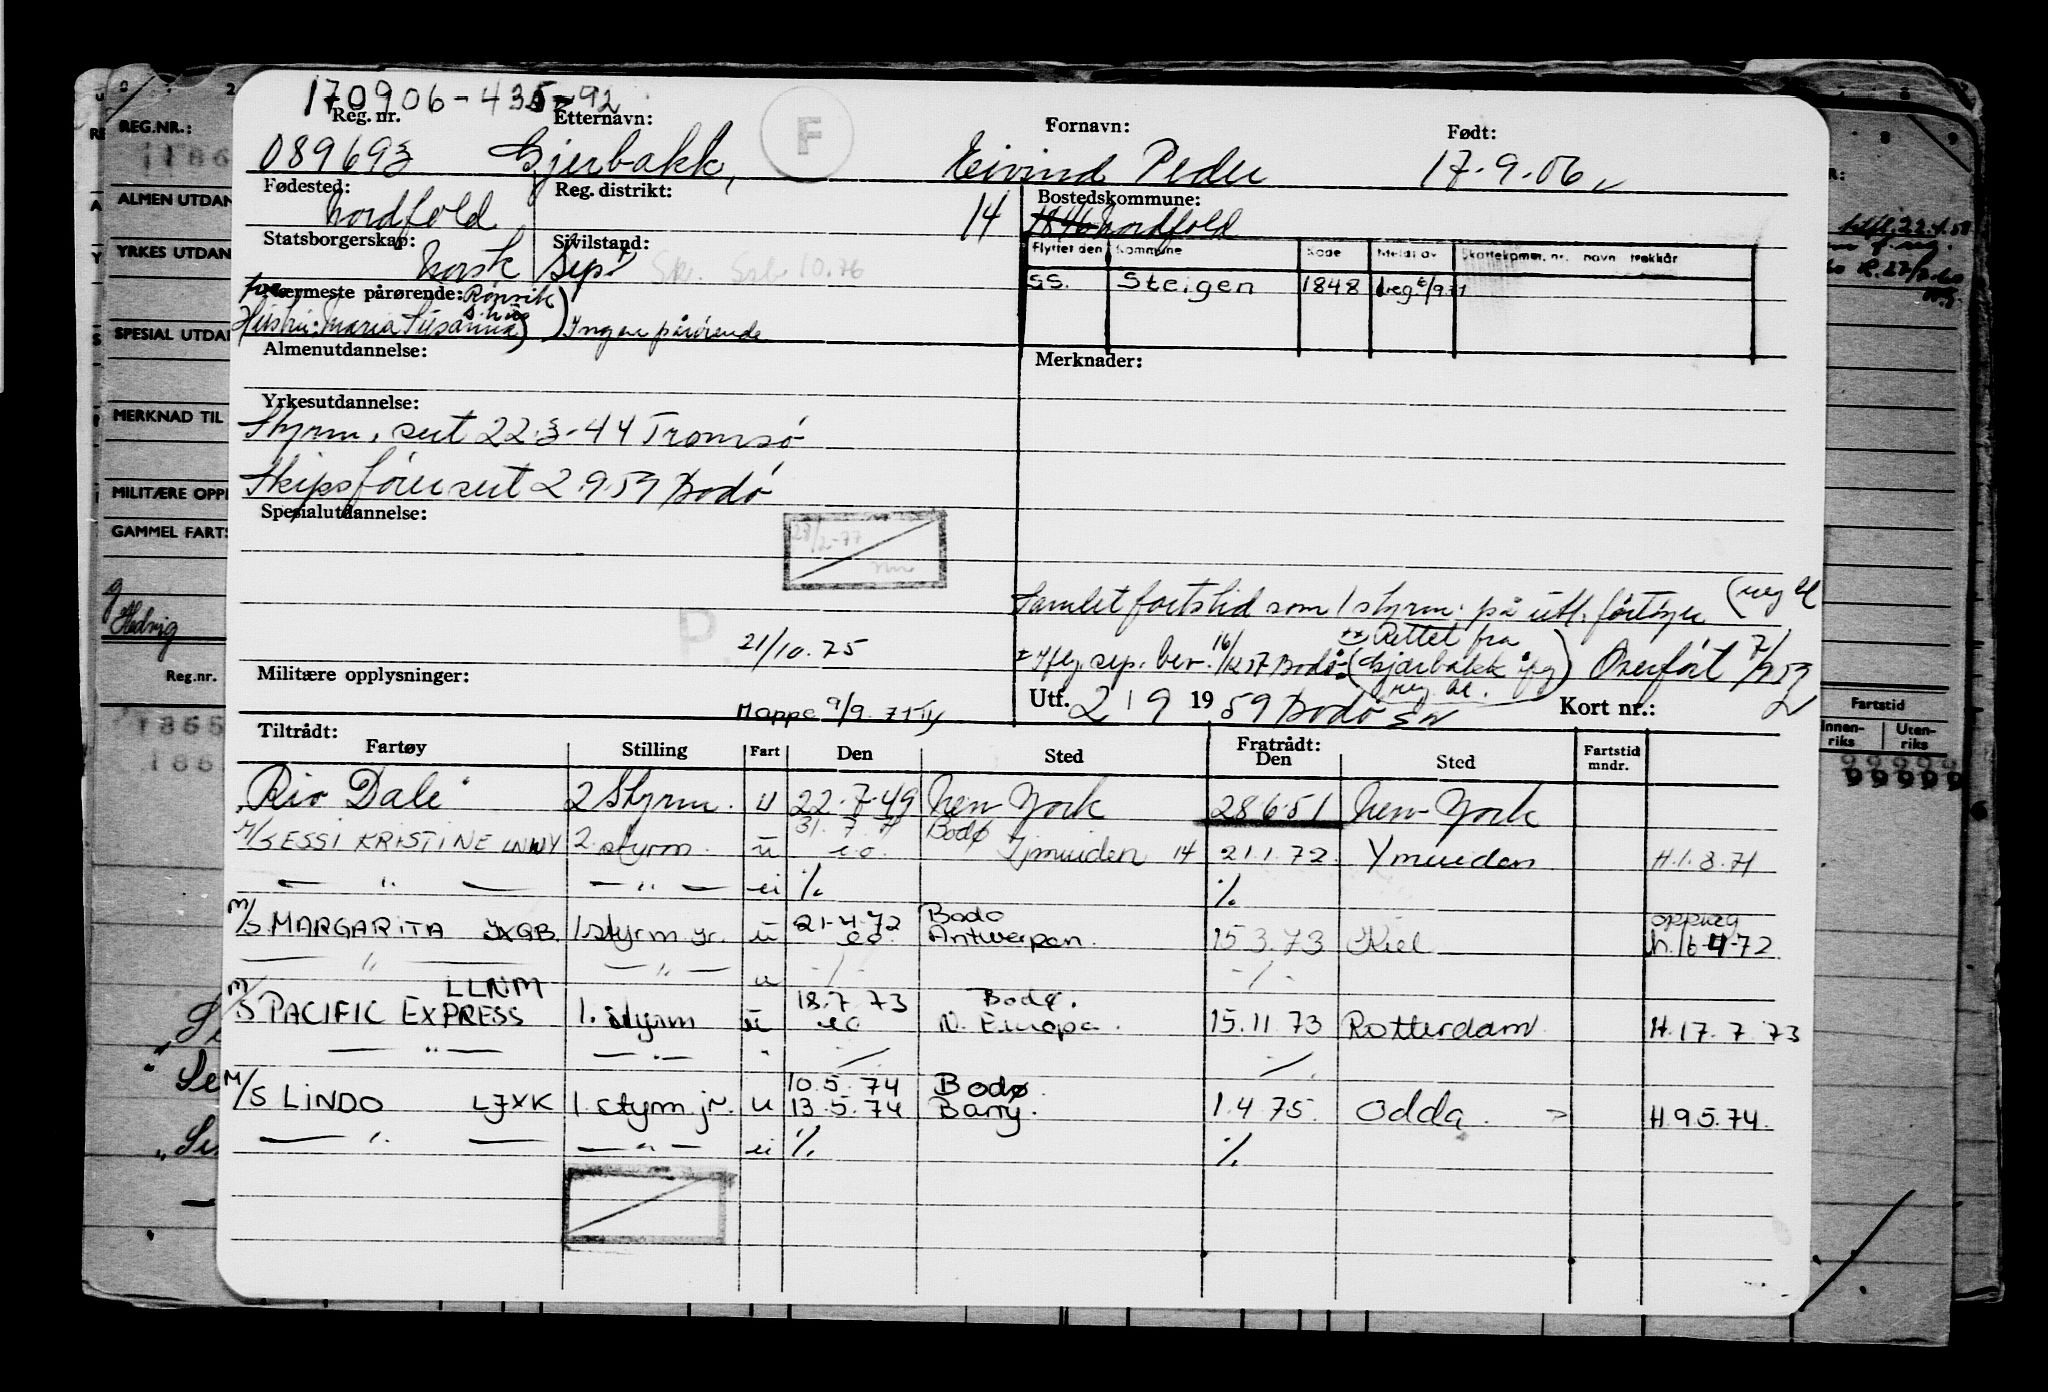 170906-435-92
Reg. nr. Etternavn: F Fornavn: Født:
089693 Gjerbakk, Eivind Peder 17-9-06
Fødested: Reg. distrikt: Bostedskommune:
Nordfold 14 1846 Nordfold
Statsborgerskap: Sivilstand: Flyttet den Kommune Kode Meldt av Skattekomm. nr. navn trekkår
Norsk Sep. Skr. 10.76
SS. Steigen 1848
Nærmeste pårørende: Rønvik
Hustru: Maria Susanna) Ingen pårørende
Almenutdannelse: Merknader:
Yrkesutdannelse:
Styrm. sert 22.3-44 Tromsø
Skipsfører sert 2.9.59 Bodø
Spesialutdannelse:
28/2-77
Samlet fartstid som 1 styrm. på utl. fartøyer
P. 21/10.75
Rettet fra
sep. bev. 16/12 57 Bodø (Gjærbakk Overført
Militære opplysninger: Utf. 2/9 1959 Bodø Kort nr.:
Mappe 9/9.71 Ty
Tiltrådt: Fratrådt:
Fartøy Stilling Fart Den Sted Den Sted Fartstid mndr.
Rio Dale 2 Styrm. u 22.7.49 New York 28.6.51 New York
31.7.71 Bodø
M/S ESSI KRISTINE LNWY 2. styrm. u ca. Ijmuiden 14 21.1.72 Ymuiden H.1.8.71
— " — — " — ei % %
21-4-72 Bodø oppreg
M/S MARGARITA JXQB 1 styrm jr. u ca. Antwerpen. 15.3.73 Kiel h.16-4-72
— " — — " — u -/- -/-
LLNM 18.7.73 Bodø.
M/S PACIFIC EXPRESS 1. styrm u ca N. Europa. 15.11.73 Rotterdam H.17.7.73
— " — — " — " -/- -/-
10.5.74 Bodø
M/S LINDO LJXK 1. styrm jr. u 13.5.74 Barry. 1.4.75. Odda H.9.5.74.
— " — — " — ei % %
REG.NR.:
ALMEN UTDAN
YRKES UTDAN
SPESIAL UTDAN
MERKNAD TIL
MILITÆRE OPPL
GAMMEL FARTS
Hedvig
Reg.nr.
Fartstid
Innen-riks Uten-riks
99999